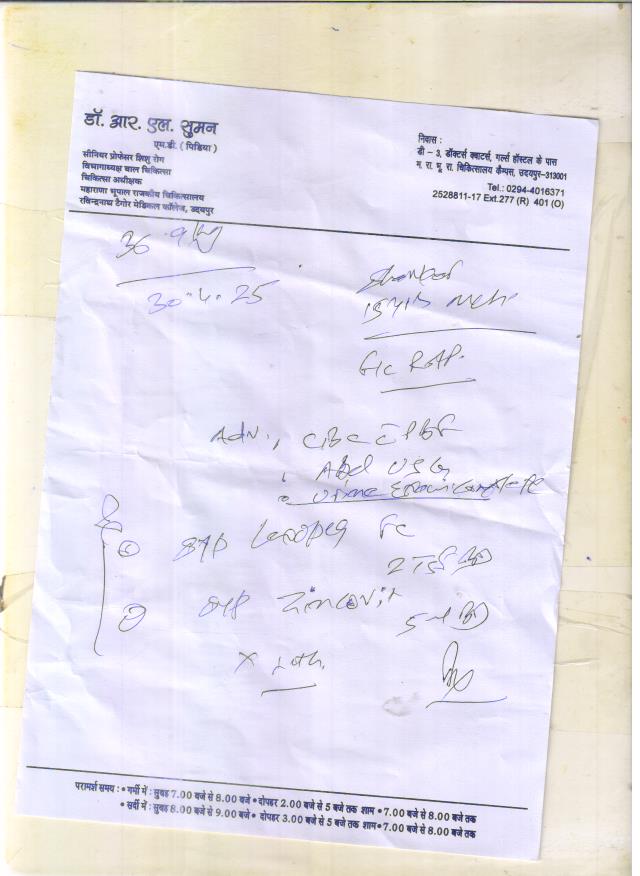 डॉ. आर. एल. सुमन
एम.डी. ( पिडिया )
सीनियर प्रोफेसर शिशु रोग
विभागाध्यक्ष बाल चिकित्सा
चिकित्सा अधीक्षक
महाराणा भूपाल राजकीय चिकित्सालय
रविन्द्रनाथ टैगोर मेडिकल कॉलेज, उदयपुर
निवास :
डी – 3, डॉक्टर्स क्वाटर्स, गर्ल्स हॉस्टल के पास
म. रा. भू. रा. चिकित्सालय कैम्पस, उदयपुर–313001
Tel.: 0294-4016371
2528811-17 Ext.277 (R) 401 (O)
30.4.25
Adv. CBC PBF
Abd USG
Urine
Syp
2 TSF BD
Syp Zincovit
5 ml BD
परामर्श समय : • गर्मी में : सुबह 7.00 बजे से 8.00 बजे • दोपहर 2.00 बजे से 5 बजे तक शाम • 7.00 बजे से 8.00 बजे तक
• सर्दी में : सुबह 8.00 बजे से 9.00 बजे • दोपहर 3.00 बजे से 5 बजे तक शाम • 7.00 बजे से 8.00 बजे तक